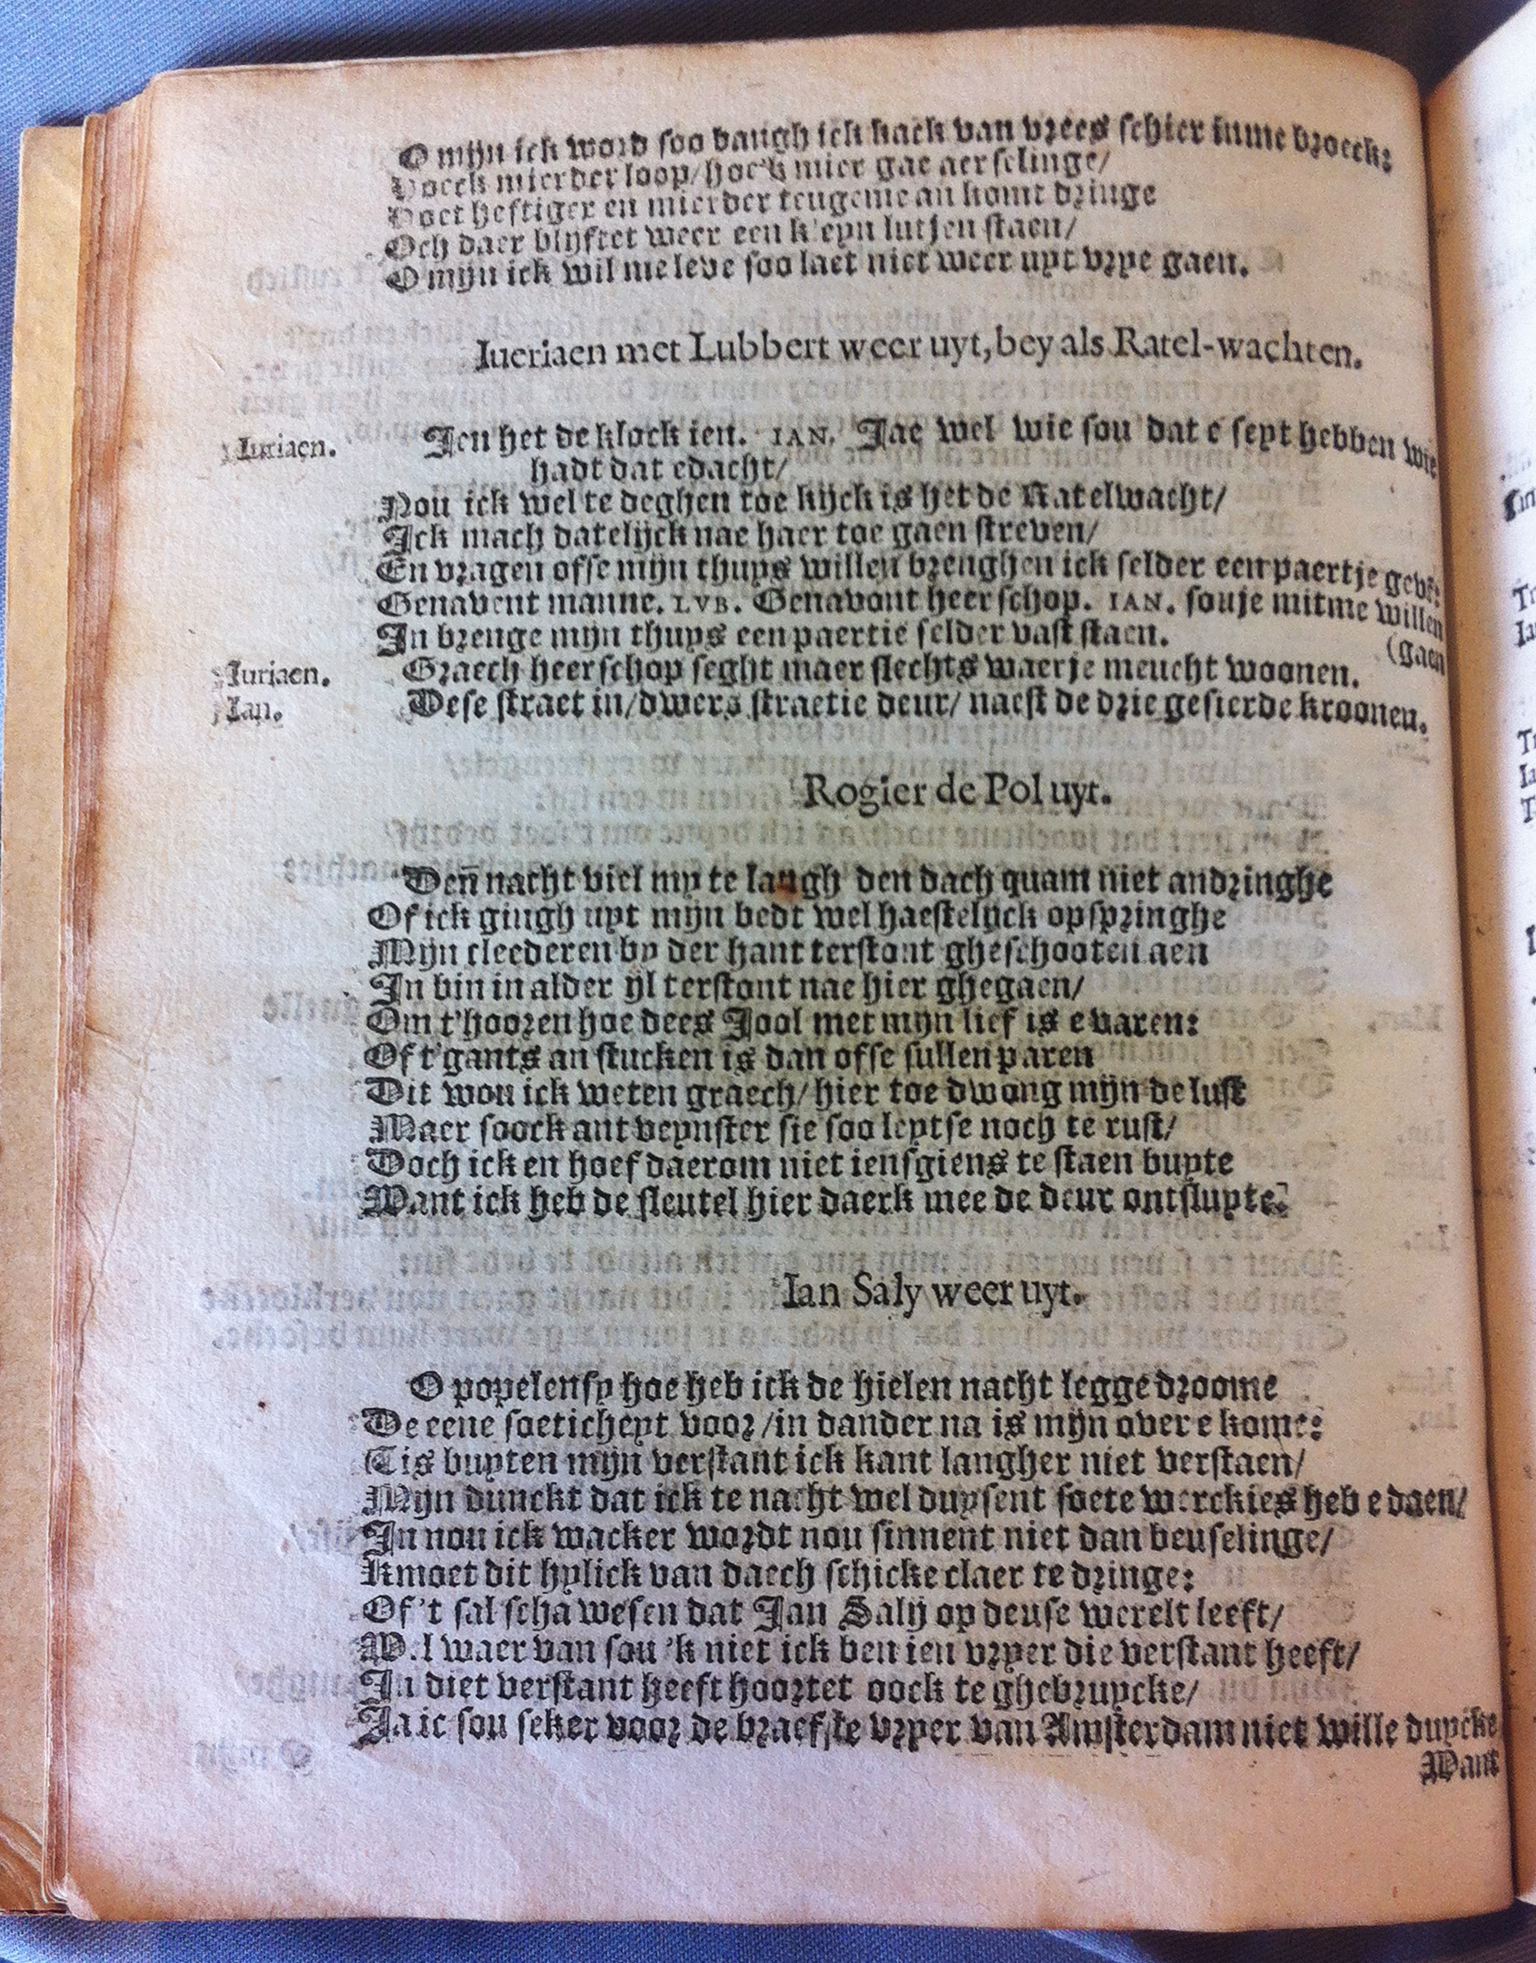 O mijn ick word soo bangh ick kack van vrees schier inme broeck:
Hoeck mierder loop/hoe'k mier gae aerselinge/
Hoet heftiger en mierder teugeme an komt dringe
Och daer blijftet weer een kleyn lutjen staen/
O mijn ick wil me leve soo laet niet weer uyt vrye gaen.
Iueriaen met Lubbert weer uyt, bey als Ratel-wachten.
Iuriaen. Ien het de klock ien. IAN. Jae wel wie sou dat e seyt hebben wie
hadt dat edacht/
Nou ick wel te deghen toe kijck is het de Ratelwacht/
Ick mach datelijck nae haer toe gaen streven/
En vragen offe mijn thuys willen brenghen ick selder een paertje geve:
Genavent manne. LVB. Genavont heerschop. IAN. souje mit me willen
In brenge mijn thuys een paertie selder vast staen. (gaen
Iuriaen. Graech heerschop seght maer slechts waerje meucht woonen.
Ian. Dese straet in/dwers straetie deur/ naest de drie gesierde kroonen.
Rogier de Pol uyt.
Deñ nacht viel my te langh den dach quam niet andringhe
Of ick gingh uyt mijn bedt wel haestelijck opspringhe
Mijn cleederen by der hant terstont gheschooten aen
In bin in alder yl terstont nae hier ghegaen/
Om t'hooren hoe dees Jool met mijn lief is e varen:
Of t'gants an stucken is dan offe sullen paren
Dit wou ick weten graech/hier toe dwong mijn de lust
Maer soock ant veynster sie soo leytse noch te rust/
Doch ick en hoef daerom niet iensgiens te staen buyte
Want ick heb de sleutel hier daerk mee de deur ontsluyte.
Ian Saly weer uyt.
O popelensy hoe heb ick de hielen nacht legge droome
De eene soeticheyt voor/in dander na is mijn over e kome:
Tis buyten mijn verstant ick kant langher niet verstaen/
Mijn dunckt dat ick te nacht wel duysent soete werckies heb e daen/
In nou ick wacker wordt nou sinnent niet dan beuselinge/
Kmoet dit hylick van daech schicke claer te dringe:
Of 't sal scha wesen dat Jan Salij op deuse werelt leeft/
Wel waer van sou 'k niet ick ben ien vryer die verstant heeft/
In diet verstant heeft hoortet oock te ghebruycke/
Ja ic sou seker voor de braefste vryer van Amsterdam niet wille duycke
Want